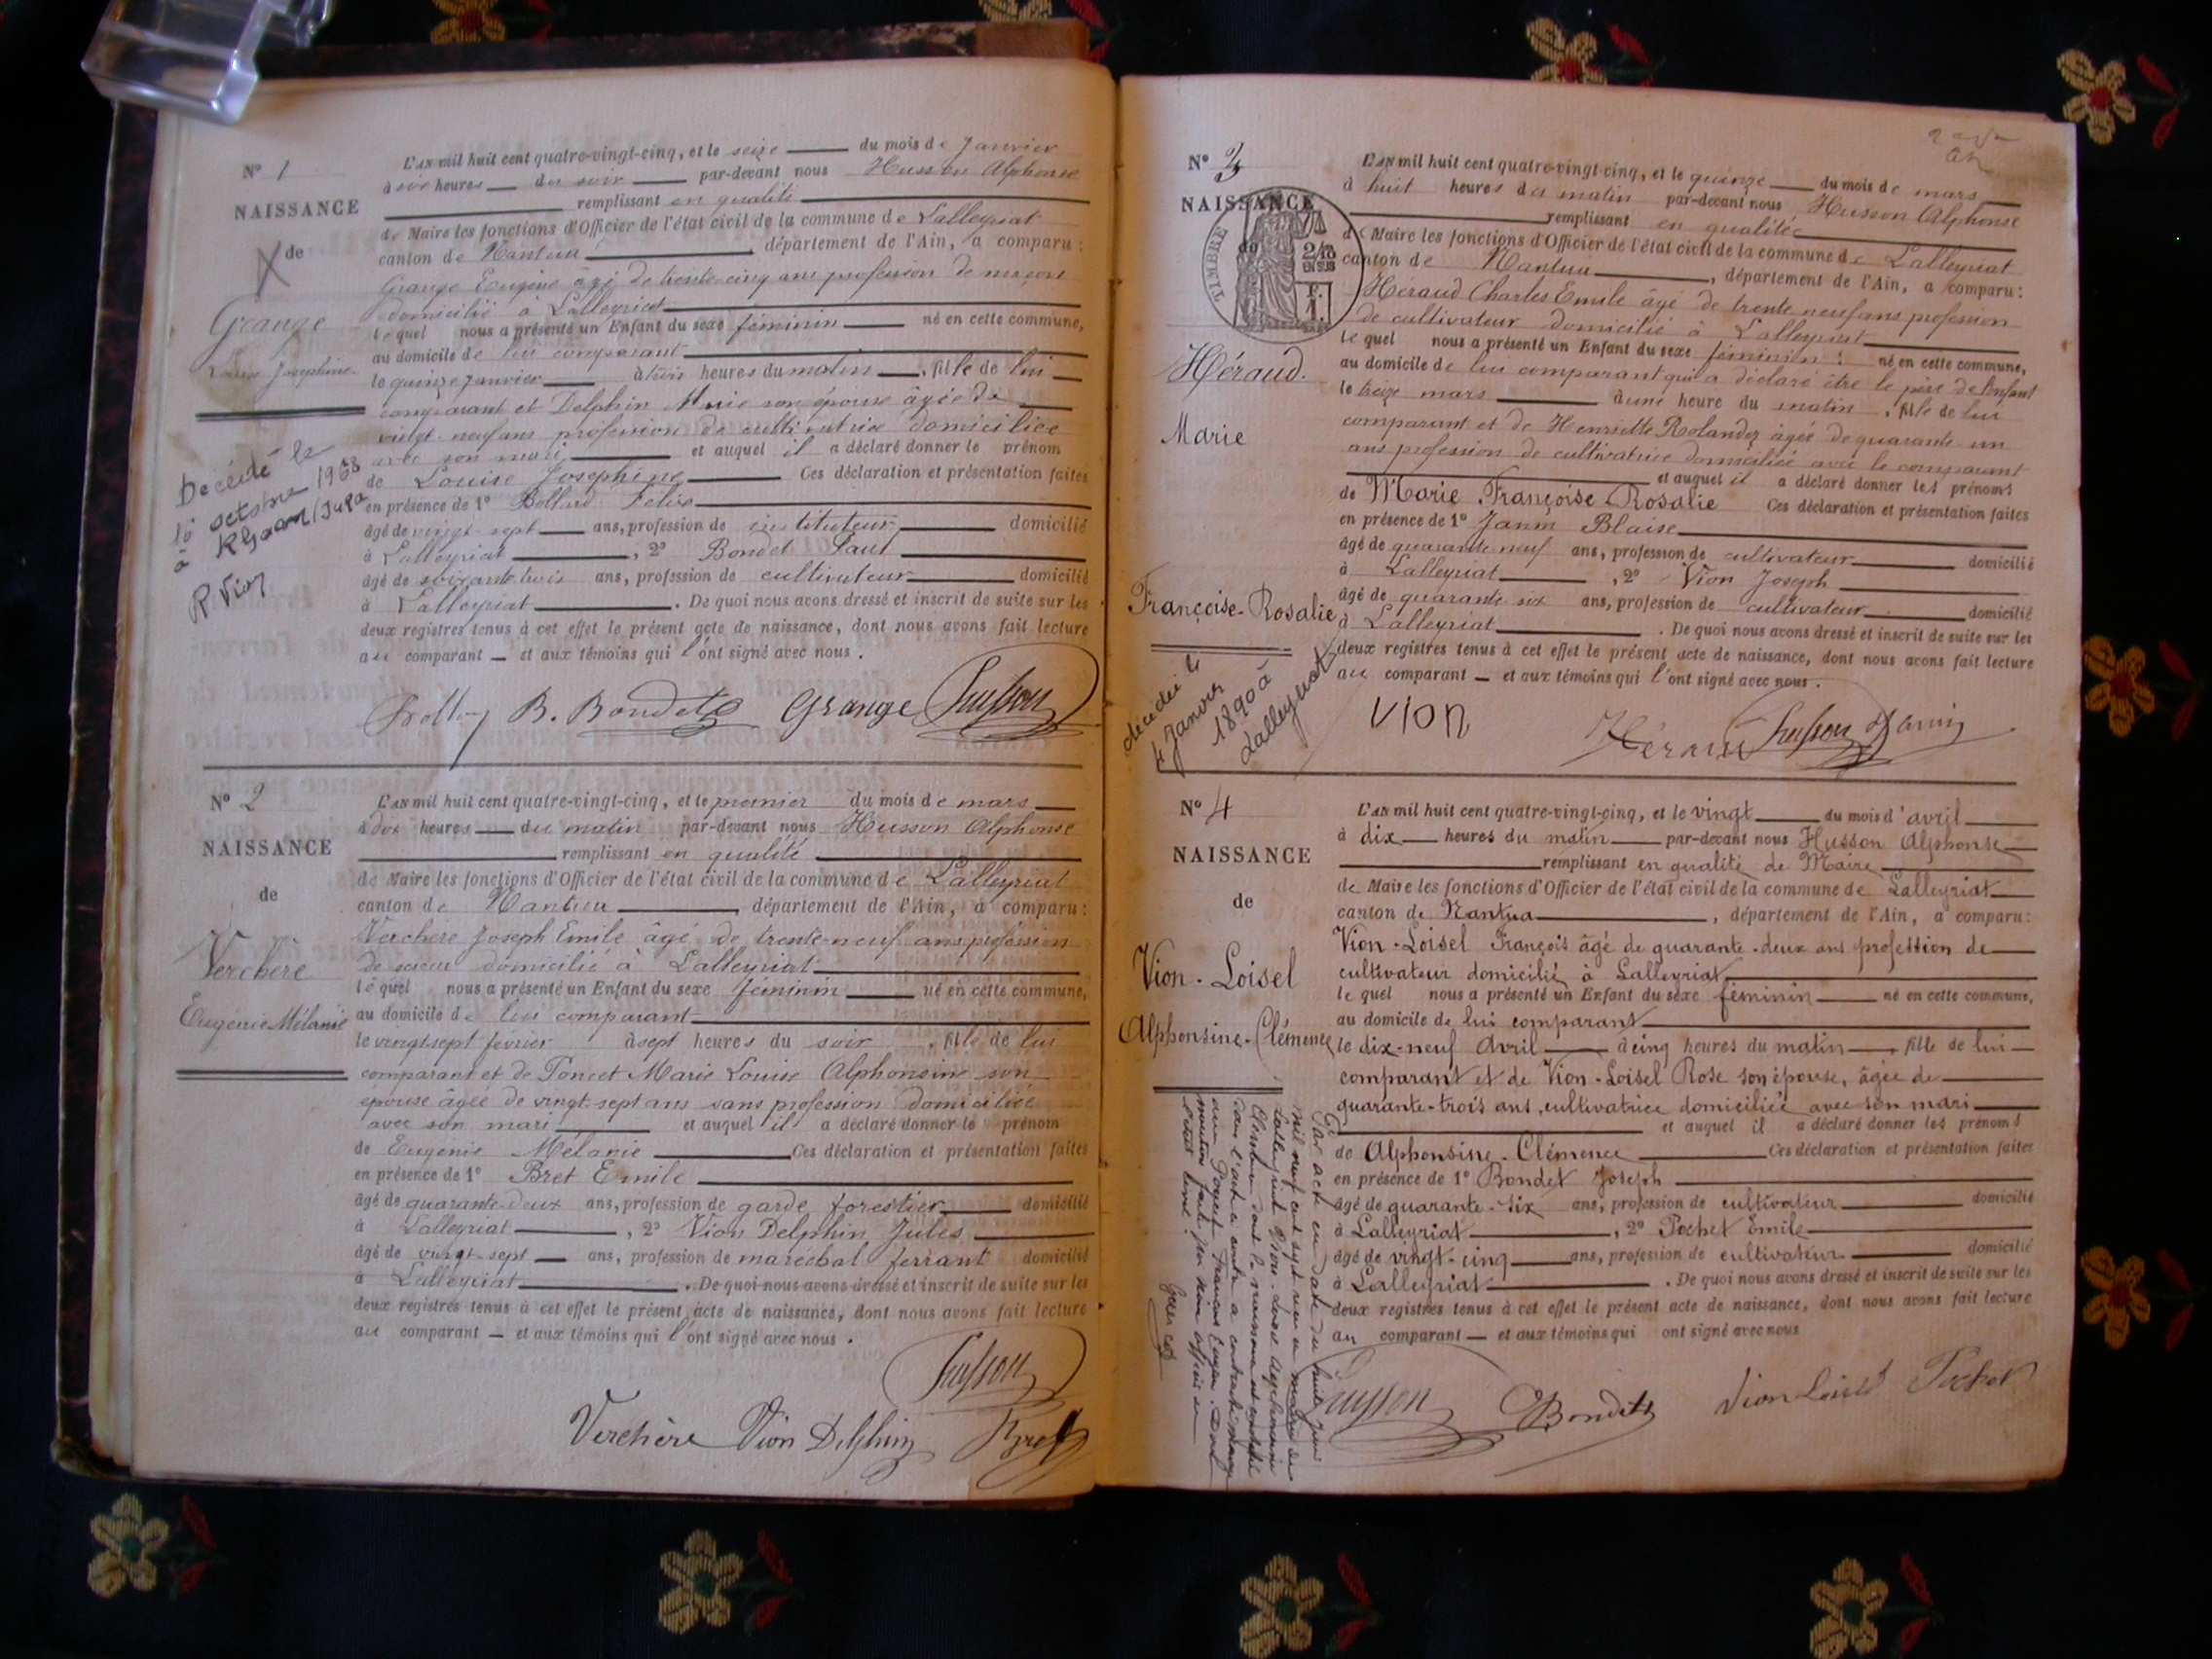 N° 1
NAISSANCE
de
Grange
Louise Joséphine
Décédé le
octobre 1968
à
R Vion
L'AN mil huit cent quatre-vingt-cinq, et le seize du mois de Janvier
à six heures du soir par-devant nous Husson Alphonse
remplissant en qualité
de Maire les fonctions d'Officier de l'état civil de la commune de Lalleyriat
canton de Nantua département de l'Ain, a comparu :
Grange Eugène âgé de trente-cinq ans profession de maçon
domicilié à Lalleyriat
lequel nous a présenté un Enfant du sexe féminin né en cette commune,
au domicile de lui comparant
le quinze Janvier à trois heures du matin, fille de lui
comparant et Delphin Marie son épouse âgée de
vingt-neuf ans profession de cultivatrice domiciliée
avec son mari et auquel il a déclaré donner le prénom
de Louise Joséphine Ces déclaration et présentation faites
en présence de 1° Félix
âgé de vingt-sept ans, profession de instituteur domicilié
à Lalleyriat, 2° Bondet Paul
âgé de soixante-trois ans, profession de cultivateur domicilié
à Lalleyriat. De quoi nous avons dressé et inscrit de suite sur les
deux registres tenus à cet effet le présent acte de naissance, dont nous avons fait lecture
au comparant et aux témoins qui l'ont signé avec nous.
B. Bondet Grange Husson
N° 2
NAISSANCE
de
Verchère
Eugénie Mélanie
L'AN mil huit cent quatre-vingt-cinq, et le premier du mois de mars
à dix heures du matin par-devant nous Husson Alphonse
remplissant en qualité
de Maire les fonctions d'Officier de l'état civil de la commune de Lalleyriat
canton de Nantua, département de l'Ain, a comparu :
Verchère Joseph Emile âgé de trente-neuf ans profession
de scieur domicilié à Lalleyriat
lequel nous a présenté un Enfant du sexe féminin né en cette commune,
au domicile de lui comparant
le vingt sept fevrier à sept heures du soir, fille de lui
comparant et de Poncet Marie Louise Alphonsine son
épouse âgée de vingt-sept ans sans profession domiciliée
avec son mari et auquel il a déclaré donner le prénom
de Eugenie Mélanie Ces déclaration et présentation faites
en présence de 1° Bret Emile
âgé de quarante-deux ans, profession de garde forestier domicilié
à Lalleyriat, 2° Vion Delphin Jules
âgé de vingt-sept ans, profession de maréchal ferrant domicilié
à Lalleyriat. De quoi nous avons dressé et inscrit de suite sur les
deux registres tenus à cet effet le présent acte de naissance, dont nous avons fait lecture
au comparant et aux témoins qui l'ont signé avec nous.
Husson
Verchère Vion Delphin Bret
N° 3
NAISSANCE
TIMBRE
2/10
EN SUS
F.
1.
Héraud.
Marie
Françoise-Rosalie
décédée le
4 Janvier
1890 à
Lalleyriat
L'AN mil huit cent quatre-vingt-cinq, et le quinze du mois de mars
à huit heures du matin par-devant nous Husson Alphonse
remplissant en qualité
de Maire les fonctions d'Officier de l'état civil de la commune de Lalleyriat
canton de Nantua, département de l'Ain, a comparu :
Héraud Charles Emile âgé de trente neuf ans profession
de cultivateur domicilié à Lalleyriat
lequel nous a présenté un Enfant du sexe féminin né en cette commune,
au domicile de lui comparant qui a déclaré être le père de l'enfant
le treize mars à une heure du matin, fille de lui
comparant et de Henriette Rolandez âgée de quarante-un
ans profession de cultivatrice domiciliée avec le comparant
et auquel il a déclaré donner les prénoms
de Marie Françoise Rosalie Ces déclaration et présentation faites
en présence de 1° Janin Blaise
âgé de quarante-neuf ans, profession de cultivateur domicilié
à Lalleyriat, 2° Vion Joseph
âgé de quarante-six ans, profession de cultivateur domicilié
à Lalleyriat. De quoi nous avons dressé et inscrit de suite sur les
deux registres tenus à cet effet le présent acte de naissance, dont nous avons fait lecture
au comparant et aux témoins qui l'ont signé avec nous.
Vion Héraud Husson Janin
N° 4
NAISSANCE
de
Vion-Loisel
Alphonsine-Clémence
L'AN mil huit cent quatre-vingt-cinq, et le vingt du mois d'avril
à dix heures du matin par-devant nous Husson Alphonse
remplissant en qualité de Maire
de Maire les fonctions d'Officier de l'état civil de la commune de Lalleyriat
canton de Nantua, département de l'Ain, a comparu :
Vion-Loisel François âgé de quarante-deux ans profession de
cultivateur domicilié à Lalleyriat
lequel nous a présenté un Enfant du sexe féminin né en cette commune,
au domicile de lui comparant
le dix-neuf Avril à cinq heures du matin, fille de lui
comparant et de Vion-Loisel Rose son épouse, âgée de
quarante-trois ans, cultivatrice domiciliée avec son mari
et auquel il a déclaré donner les prénoms
de Alphonsine-Clémence Ces déclaration et présentation faites
en présence de 1° Bondet Joseph
âgé de quarante-six ans, profession de cultivateur domicilié
à Lalleyriat, 2° Pochet Emile
âgé de vingt-cinq ans, profession de cultivateur domicilié
à Lalleyriat. De quoi nous avons dressé et inscrit de suite sur les
deux registres tenus à cet effet le présent acte de naissance, dont nous avons fait lecture
au comparant et aux témoins qui ont signé avec nous
Husson Bondet Vion Loisel Pochet
Par acte en date du huit Juin
mil neuf cent sept
Lalleyriat Vion-Loisel Alphonsine
Clémence dont la naissance est constatée
dans l'acte ci contre a contracté mariage
avec François Eugène